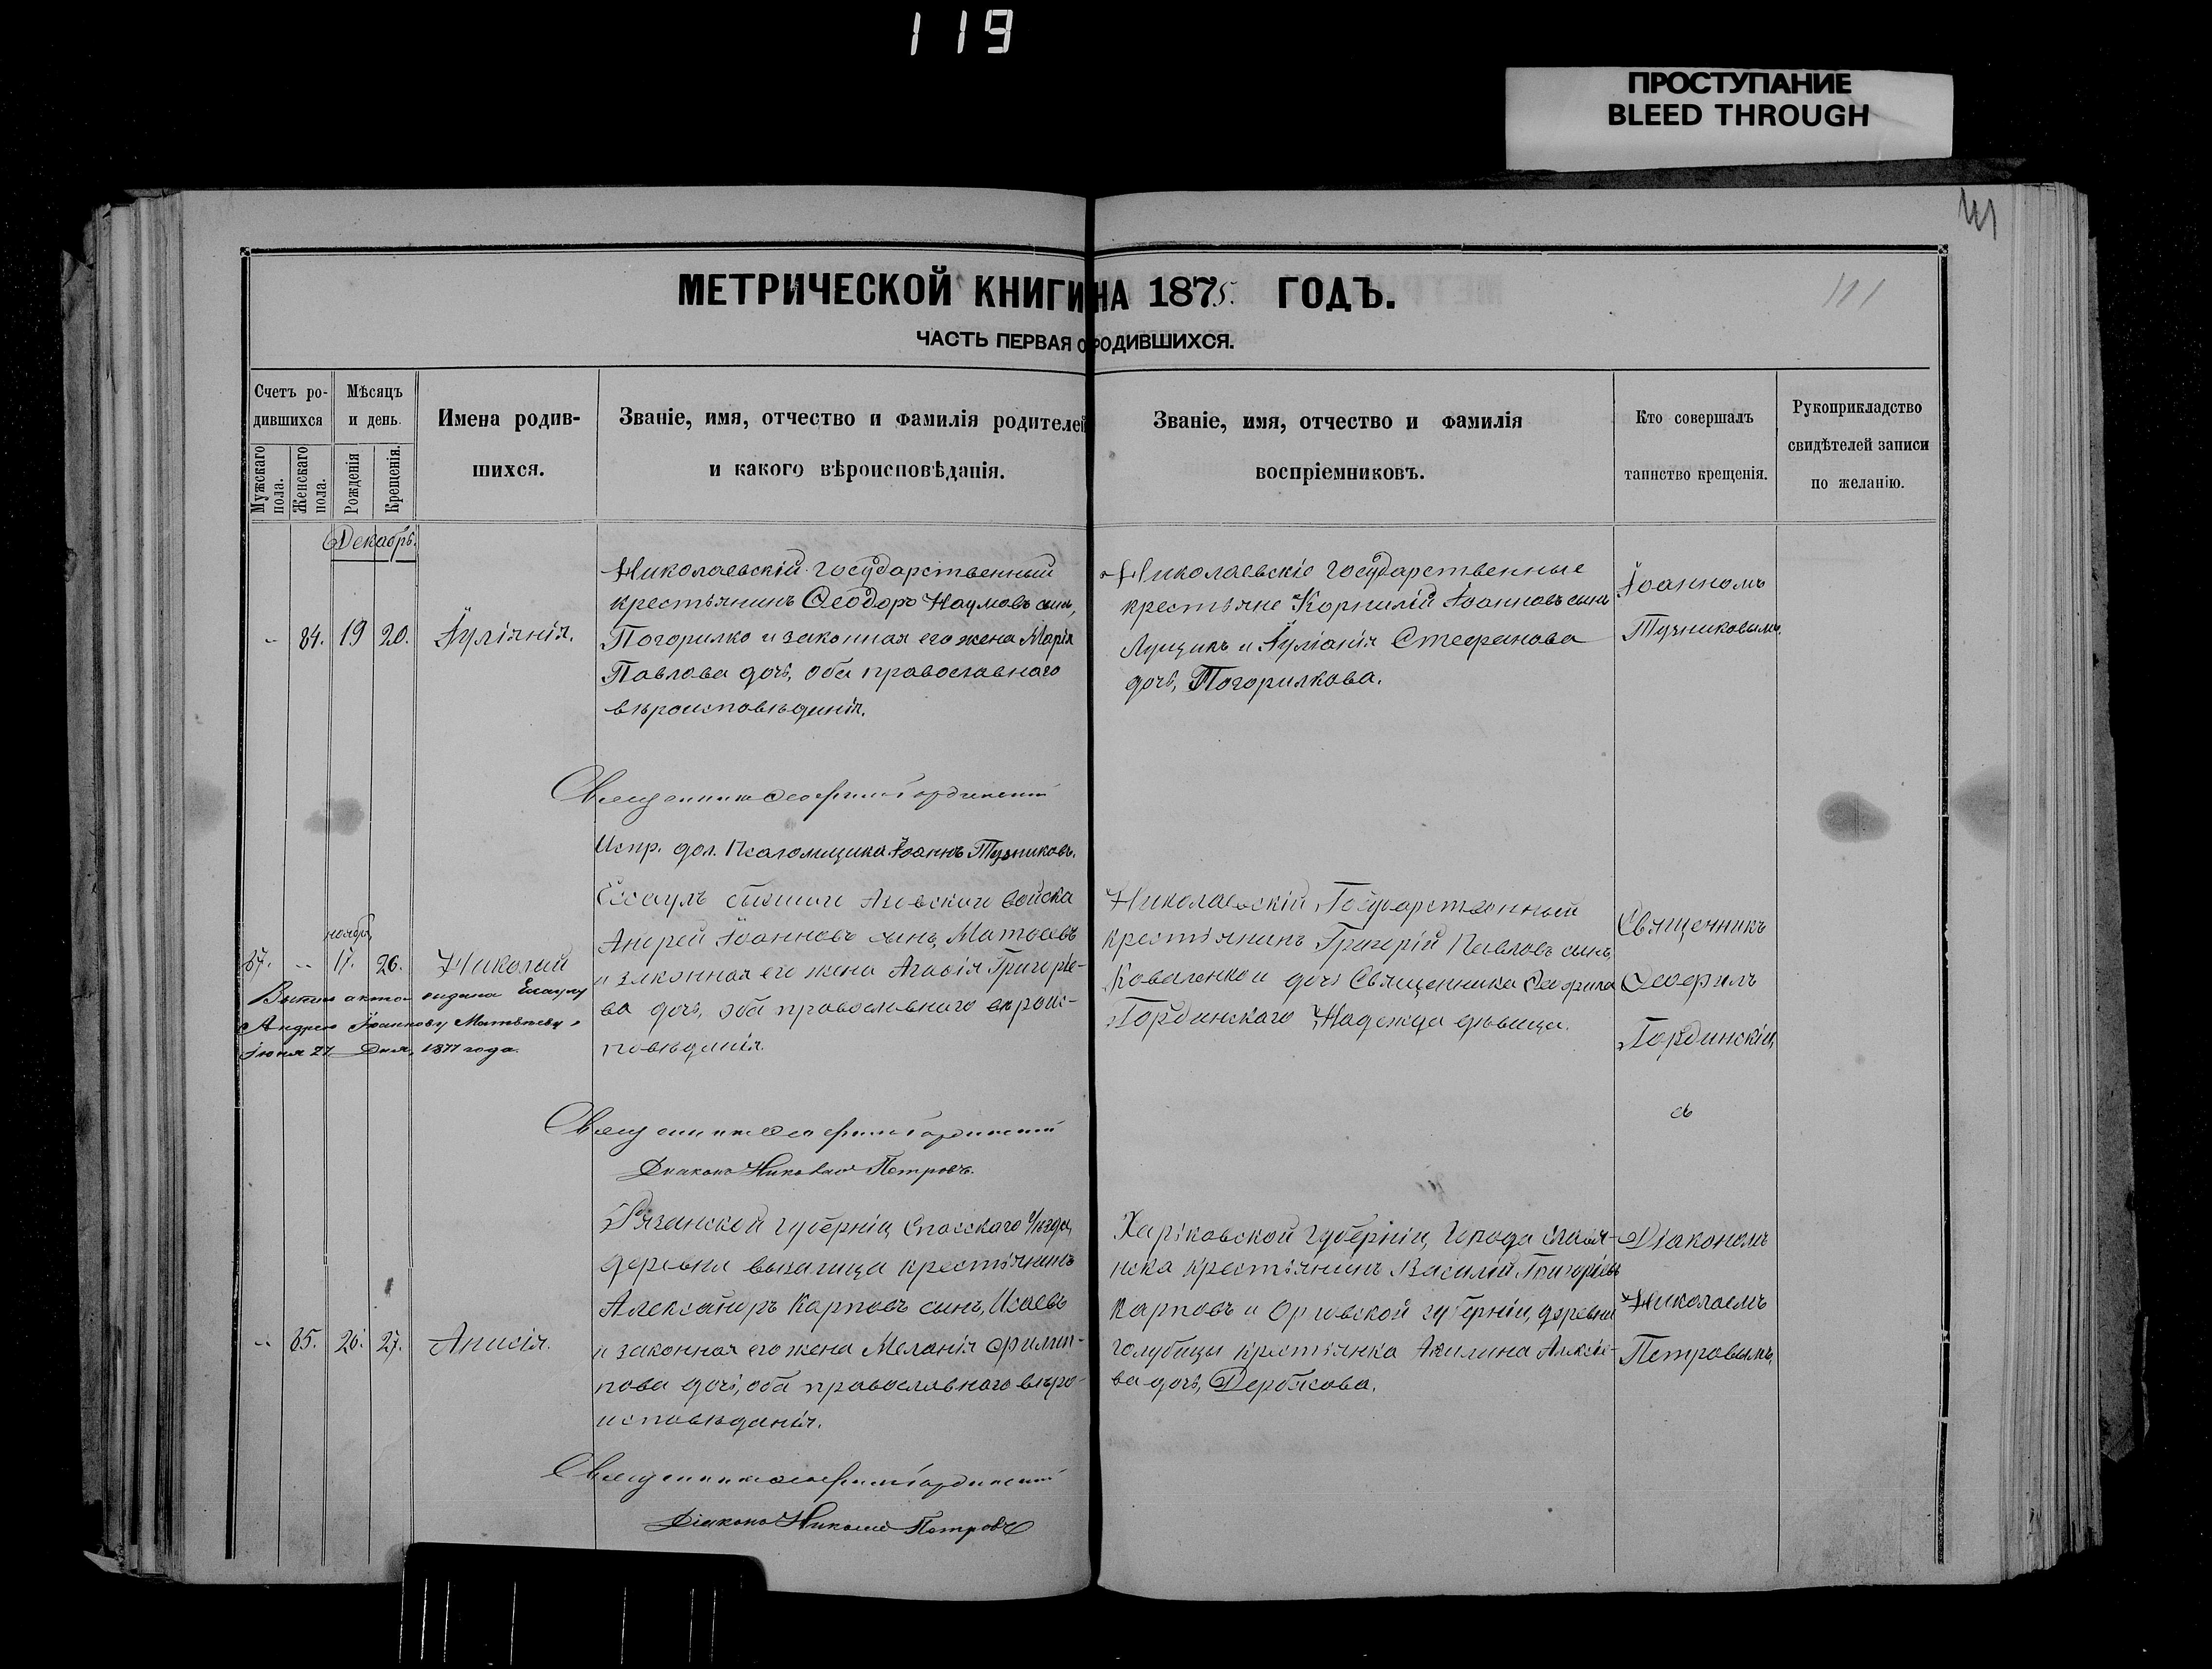 119
ПРОСТУПАНИЕ
BLEED THROUGH
111
МЕТРИЧЕСКОЙ КНИГИ НА 1875. ГОДЪ.
ЧАСТЬ ПЕРВАЯ О РОДИВШИХСЯ.
Счетъ ро-
дившихся
Мужскаго пола.
Женскаго пола.
Мѣсяцъ
и день.
Рожденія
Крещенія.
Имена родив-
шихся.
Званіе, имя, отчество и фамилія родителей
и какого вѣроисповѣданія.
Званіе, имя, отчество и фамилія
воспріемниковъ.
Кто совершалъ
таинство крещенія.
Рукоприкладство
свидѣтелей записи
по желанію.
Декабрь.
84. 19 20. Іуліянія.
Николаевскій государственный
крестьянинъ Ѳеодоръ Наумовъ сынъ,
Погорилко и законная его жена Марія
Павлова дочь, оба православнаго
вѣроисповѣданія.
Николаевскіе государственные
крестьяне Корнилій Іоанновъ сынъ
Лущикъ и Іуліанія Стефанова
дочь, Погорилкова.
Іоанномъ
Тучниковымъ.
Священникъ Ѳеофилъ Гординскій
Испр. дол. Псаломщика Іоаннъ Тучниковъ.
ноябр,
87. -- 17. 26. Николай
Выпись акта видана Есаулу
Андрею Іоаннову Матвѣеву,
Іюня 27 Дня, 1877 года.
Есаулъ бывшаго Азовскаго войска
Андрей Іоанновъ сынъ, Матвѣевъ
и законная его жена Агафія Григоріе-
ва дочь, оба православнаго вѣроис-
повѣданія.
Николаевскій Государственный
крестьянинъ Григорій Павловъ сынъ,
Коваленко и дочь Священника Ѳеофила
Гординскаго Надежда дѣвица.
Священникъ
Ѳеофилъ
Гординскій,
съ
Священникъ Ѳеофилъ Гординскій
Діаконъ Николай Петровъ.
85. 26. 27. Анисія.
Рязанской губерніи, Спасскаго Уѣзда,
деревни крестьянинъ
Александръ Карповъ сынъ, Исаевъ
и законная его жена Меланія Филип-
пова дочь, оба православнаго вѣро-
исповѣданія.
Харьковской губерніи, города Славя-
нска крестьянинъ Василій Григоріевъ
Карповъ и Орловской губерніи, деревни
голубицы крестьянка Акилина Алексіе-
ва дочь, Дербасова.
Діакономъ
Николаемъ
Петровымъ,
Священникъ Ѳеофилъ Гординскій
Діаконъ Николай Петровъ